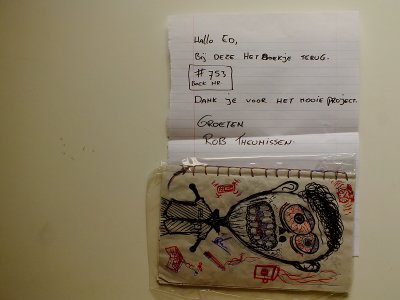 Hallo Ed,
Bij deze het boekje terug.
#753
Back nr
Dank je voor het mooie project.
Groeten
Rob Theunissen.